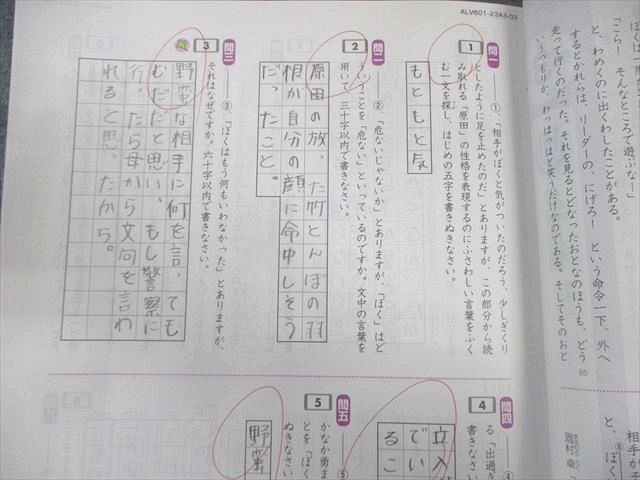 ALV601-23A3-03
「こら！　そんなところで遊ぶな！」
と、わめくのに出くわしたことがある。
するとかれらは、リーダーの、にげろ！　という命令一下、外へ
走って行くのだった。それを見るとどなったおとなのほうも、どう
65
いうつもりか、わっはっはと笑うだけなのである。そしてそのおと
問一
1
①「相手がぼくと気がついたのだろう、少しぎくり
としたように足を止めたのだ」とありますが、この部分から読
み取れる「原田」の性格を表現するのにふさわしい言葉をふく
む一文を探し、はじめの五字を書きぬきなさい。
もともと気
問二
2
②「危ないじゃないか」とありますが、「ぼく」はど
ういうことを「危ない」といっているのですか。文中の言葉を
用いて、三十字以内で書きなさい。
原田の放った竹とんぼの羽
根が自分の顔に命中しそう
だったこと。
問三
3
③「ぼくはもう何もいわなかった」とありますが、
それはなぜですか。六十字以内で書きなさい。
野蛮な相手に何を言っても
むだだと思い、もし警察に
行ったら母から文句を言わ
れると思ったから。
問四
4
④
る「出過ぎ
書きなさい
立入
でい
るこ
問五
5
⑤
かなか勇ま
とを「ぼく
ぬきなさい
野蛮
相手が
と、⑧ぼく
眉村 卓